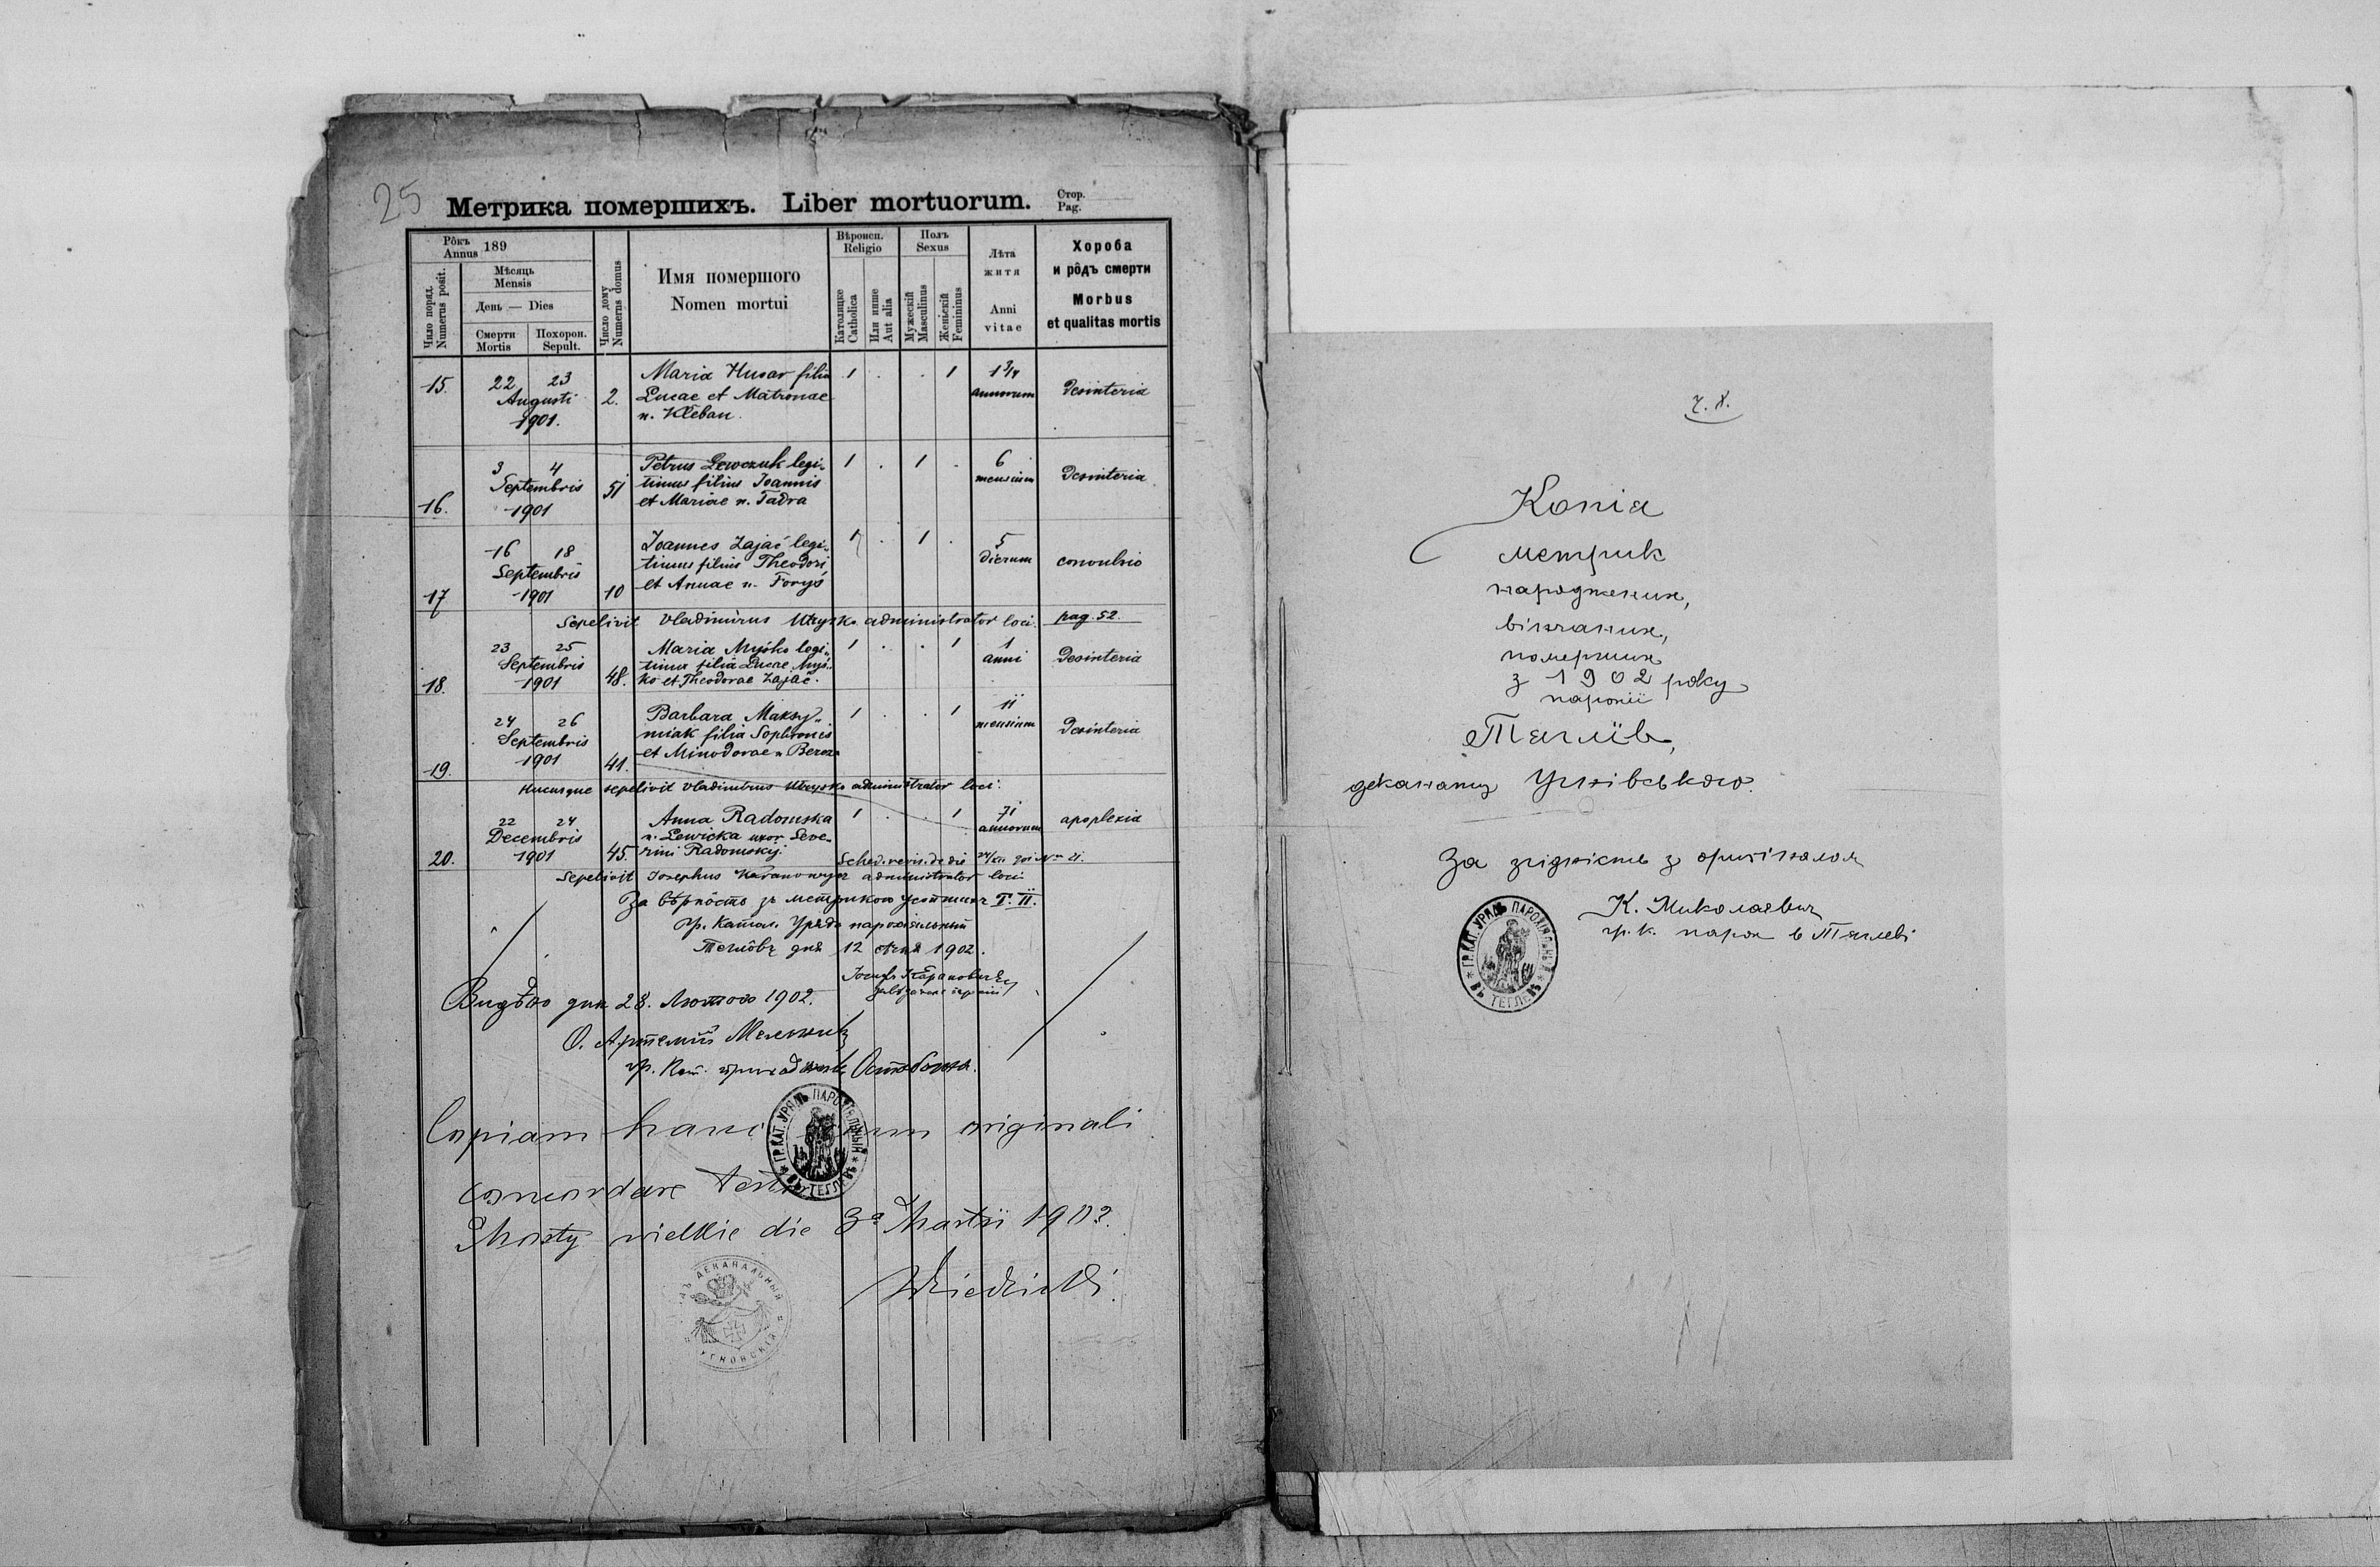 25
Метрика помершихъ. Liber mortuorum. Стор. Pag.
Рôкъ Annus 189
Число поряд. Numerus posit.
Мѣсяць Mensis
День — Dies
Смерти Mortis
Похорон. Sepult.
Число дому Numerus domus
Имя помершого
Nomen mortui
Вѣроисп. Religio
Католицке Catholica
Или инше Aut alia
Полъ Sexus
Мужескій Masculinus
Женьскій Femininus
Лѣта житя
Anni vitae
Хороба и рôдъ смерти
Morbus et qualitas mortis
15. 22 23 Augusti 1901. 2. Maria Husar filia 1 . . 1 1 3/4 annorum Desinteria
Lucae et Matronae
n. Kleban.
16. 3 4 Septembris 1901 51 Petrus Lewczuk legi- 1 . 1 . 6 mensium Desinteria
timus filius Joannis
et Mariae n. Fadra
17 16 18 Septembris 1901 10 Joannes Zajać legi- 1 . 1 . 5 dierum convulsio
timus filius Theodori
et Annae n. Foryś
Sepelivit Vladimirus administrator loci. pag. 52.
18. 23 25 Septembris 1901 48. Maria Myśko legi- 1 . . 1 1 anni Desinteria
tima filia Lucae Myś-
ko et Theodorae Zajać.
19. 24 26 Septembris 1901 41. Barbara Maksy- 1 . . 1 11 mensium Desinteria
miak filia Sophronis
et Minodorae n Bereza
Hucusque sepelivit Vladimirus administrator loci.
20. 22 24 Decembris 1901 45. Anna Radomska 1 . . 1 71 annorum apoplexia
n. Lewicka uxor Seve-
rini Radomskyj.
Sched. revis. de die 24/XII 901 Nro 21.
Sepelivit Josephus Karanowycz administrator loci
За вѣрность зъ метрикою Т. II.
гр. катол. Урядъ парохіяльный
дня 12 1902.
Видѣно дня 28. Лютого 1902.
О. Артемій
гр. кат.
Copiam hanc cum originali
concordare
Mosty wielkie die 3a Martii 1902.
ГР.КАТ. УРЯДЪ ПАРОХІЯЛЬНЫЙ ВЪ ТЕГЛЕВѢ
ДЕКАНАЛЬНЫЙ УГНОВСКІЙ
Копія
метрик
народжених,
вінчаних,
померших
з 1902 року
парохії
Тяглів,
деканату Угнівського.
За згідність з оригіналом
К. Миколаєвич
гр. к. парох в Тяглеві
ГР.КАТ. УРЯДЪ ПАРОХІЯЛЬНЫЙ ВЪ ТЕГЛЕВѢ